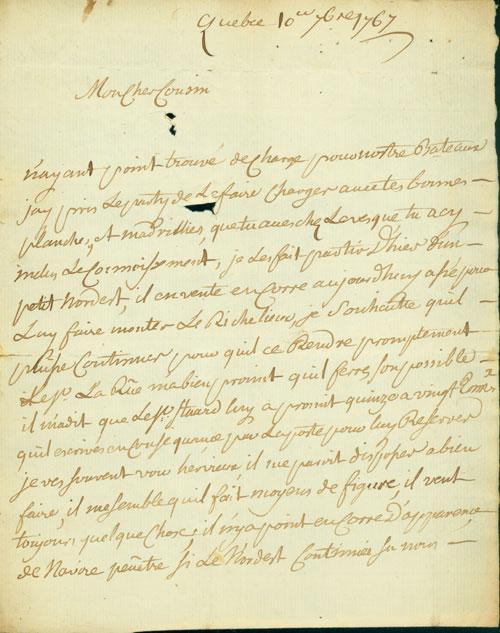 Quebec 10e 7bre 1767
Mon Cher Cousin
n'ayant point trouvé de charge pour nostre Bateaux
jay pris Le party de Le faire Charger avec tes bonnes
planche, et madriées, que tu aves chez que tu a cy
inclus Le Connoissement, je Les fait partir D'hier d'un
petit Nordest, il en vente encorre aujourdhuy assé pour
Luy faire monter Le Richelieu, je Souhaitte qu'il
puisse Continuer pour quil ce Rendre promptement
Le Sr. La Rüe ma bien promit quil ferez son possible
il m'a dit que Le Sr. huard Luy a promit quinze a vingt
quil escrives en Cuse par La poste pour Luy Reserver
je ves souvent vour hervieux, il me paroit disposer a bien
faire, il me semble quil fait moyens de figure, il vent
toujours quelque Chose, il n'y a point encorre D'apparence
de Navire peuêtre Si Le Nordest Continuée Sa nous